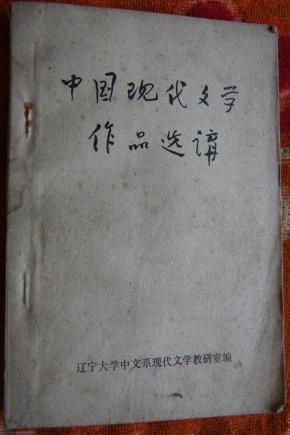 中国现代文学
作品选讲
辽宁大学中文系现代文学教研室编